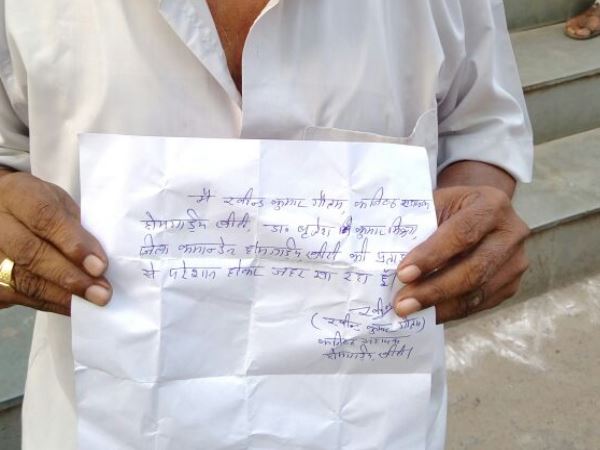 मैं रवीन्द्र कुमार गौतम, कनिष्ठ सहायक,
होमगार्ड्स, डा० कुमार मिश्रा,
जिला कमान्डेन्ट होमगार्ड्स की
से परेशान होकर जहर खा रहा हूँ।
(रवीन्द्र कुमार गौतम)
कनिष्ठ सहायक
होमगार्ड्स